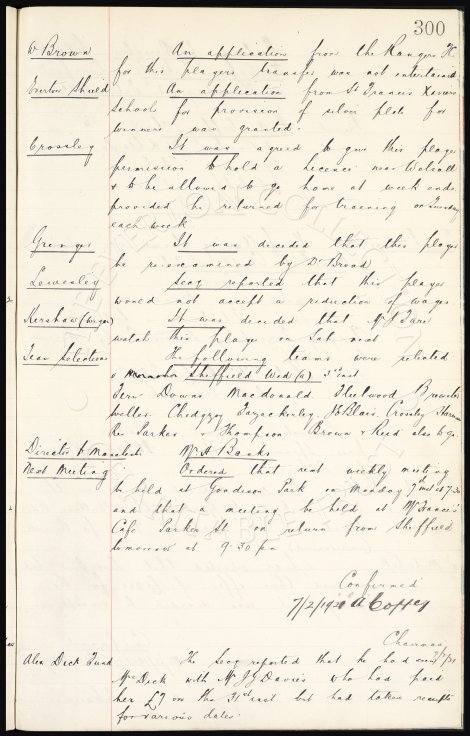 300
W Brown An application from the Rangers F.C.
for this players transfer was not entertained
Everton Shield An application from St Francis Xaviers
Schools for provision of silver plate for
winners was granted.
Crossley It was agreed to give this player
permission to hold a licence near Walsall
& to be allowed to go home at week ends
provided he returned for training on Tuesday
each week
Grenyer It was decided that this player
be re-examined by Dr Broad
Lowesley Secy reported that this player
would not accept a reduction of wages
Kershaw (Wigan) It was decided that Mr
watch this player on Sat next
Team Selections The following teams were selected
v Sheffield Wed (a) 5th inst
Fern: Downs Macdonald Fleetwood Brewster
Weller. Chedgzoy Fazackerley. Blair. Crossley Harrison
Res Parker & Thompson Brown & Reid also to go.
Director to Mr A Banks
Next Meeting Ordered that next weekly meeting
be held at Goodison Park on Monday 7th inst at 7-30
and that a meeting be held at
Cafe Parker St on return from Sheffield
tomorrow at 9-30 pm
Confirmed
7/2/1921
Chairman
Alex Dick Fund The Secy reported that he had
Mrs Dick with Mr J Davies who had paid
her £7 on the 31st inst but had taken receipts
for various dates.